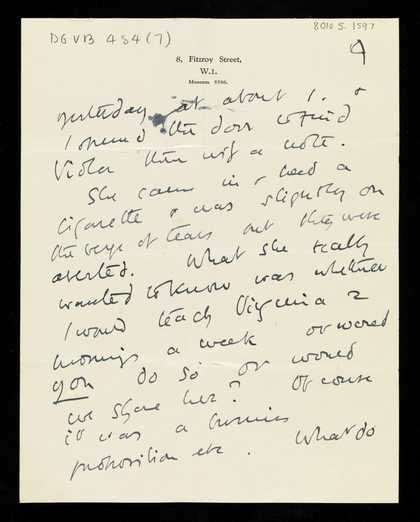 DGVB 454(7)
8010 5. 1597
9
8, Fitzroy Street,
W.1.
yesterday at about 1. &
I opened the door to find
Viola there wif a note.
She came in & had a
cigarette & was slightly on
the verge of tears but they were
averted. What she really
wanted to know was whether
I would teach Virginia 2
mornings a week or would
you do so or would
we share her? Of course
it was a
proposition etc. What do